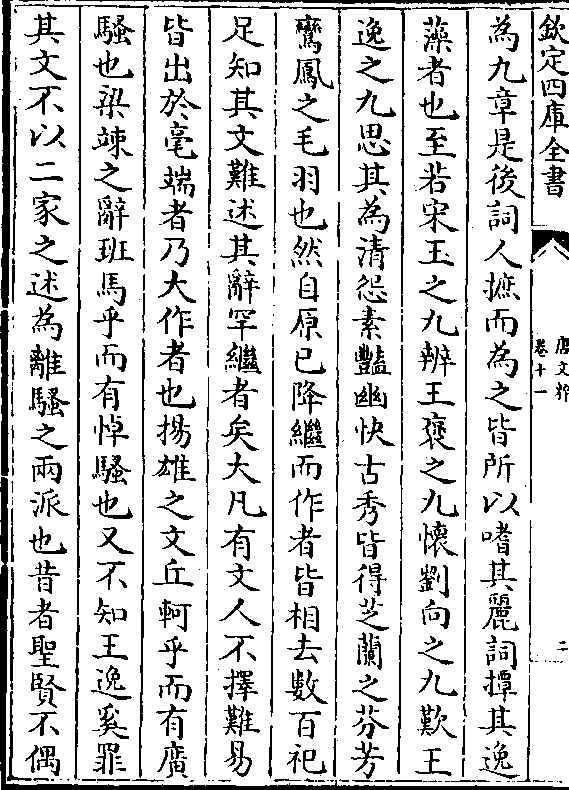 欽定四庫全書
唐文粹
卷十一
二
為九章是後詞人摭而為之皆所以嗜其麗詞撢其逸
藻者也至若宋玉之九辨王褒之九懷劉向之九歎王
逸之九思其為清怨素豔幽快古秀皆得芝蘭之芬芳
鸞鳳之毛羽也然自原已降繼而作者皆相去數百祀
足知其文難述其辭罕繼者矣大凡有文人不擇難易
皆出於毫端者乃大作者也揚雄之文丘軻乎而有廣
騷也梁竦之辭班馬乎而有悼騷也又不知王逸奚罪
其文不以二家之述為離騷之兩派也昔者聖賢不偶